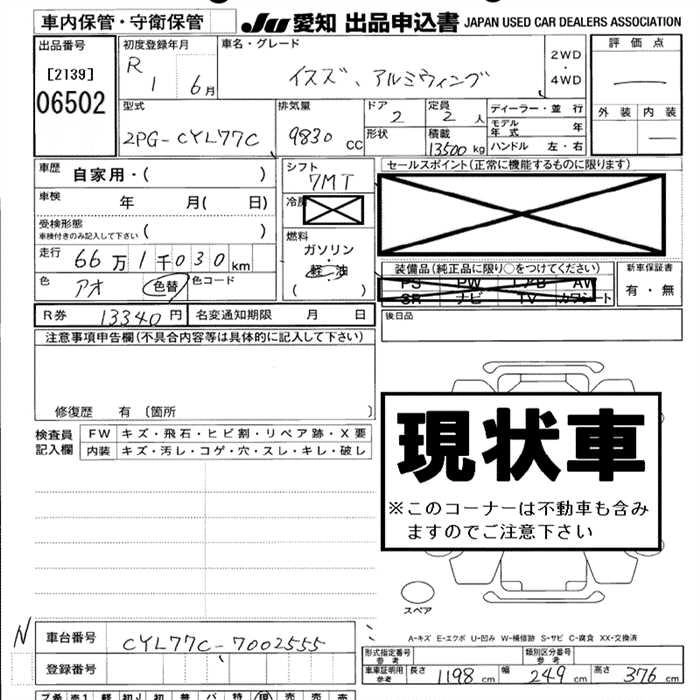 車内保管・守衛保管
JU 愛知 出品申込書 JAPAN USED CAR DEALERS ASSOCIATION
出品番号
[2139]
06502
初度登録年月
R 1 6月
車名・グレード
イスズ、アルミウィング
2WD
・
4WD
評価点
外装 内装
型式
2PG-CYL77C
排気量
9830 CC
ドア
2
形状
定員
2 人
積載
13500 kg
ディーラー・並行
モデル年式 年
ハンドル 左・右
車歴
自家用・( )
車検
年 月( 日)
受検形態
車検付きのみ記入して下さい ( )
走行
66万1千030 km
色
アオ 色替 色コード
シフト
7MT
冷房
燃料
ガソリン・
軽油
( )
セールスポイント(正常に機能するものに限ります)
装備品(純正品に限り○をつけてください)
PS PW エアB AW
SR ナビ TV カワシート
新車保証書
有・無
後日品
R券 13340円
名変通知期限 月 日
注意事項申告欄(不具合内容等は具体的に記入して下さい)
修復歴 有 〔箇所 〕
検査員
記入欄
FW キズ・飛石・ヒビ割・リペア跡・X要
内装 キズ・汚レ・コゲ・穴・スレ・キレ・破レ
現状車
※このコーナーは不動車も含み
ますのでご注意下さい
スペア
A-キズ E-エクボ U-凹み W-補修跡 S-サビ C-腐食 XX-交換済
N
車台番号 CYL77C-7002555
登録番号
形式指定番号
参考
類別区分番号
参考
車庫証明用
参考
長さ 1198 cm 幅 249 cm 高さ 376 cm